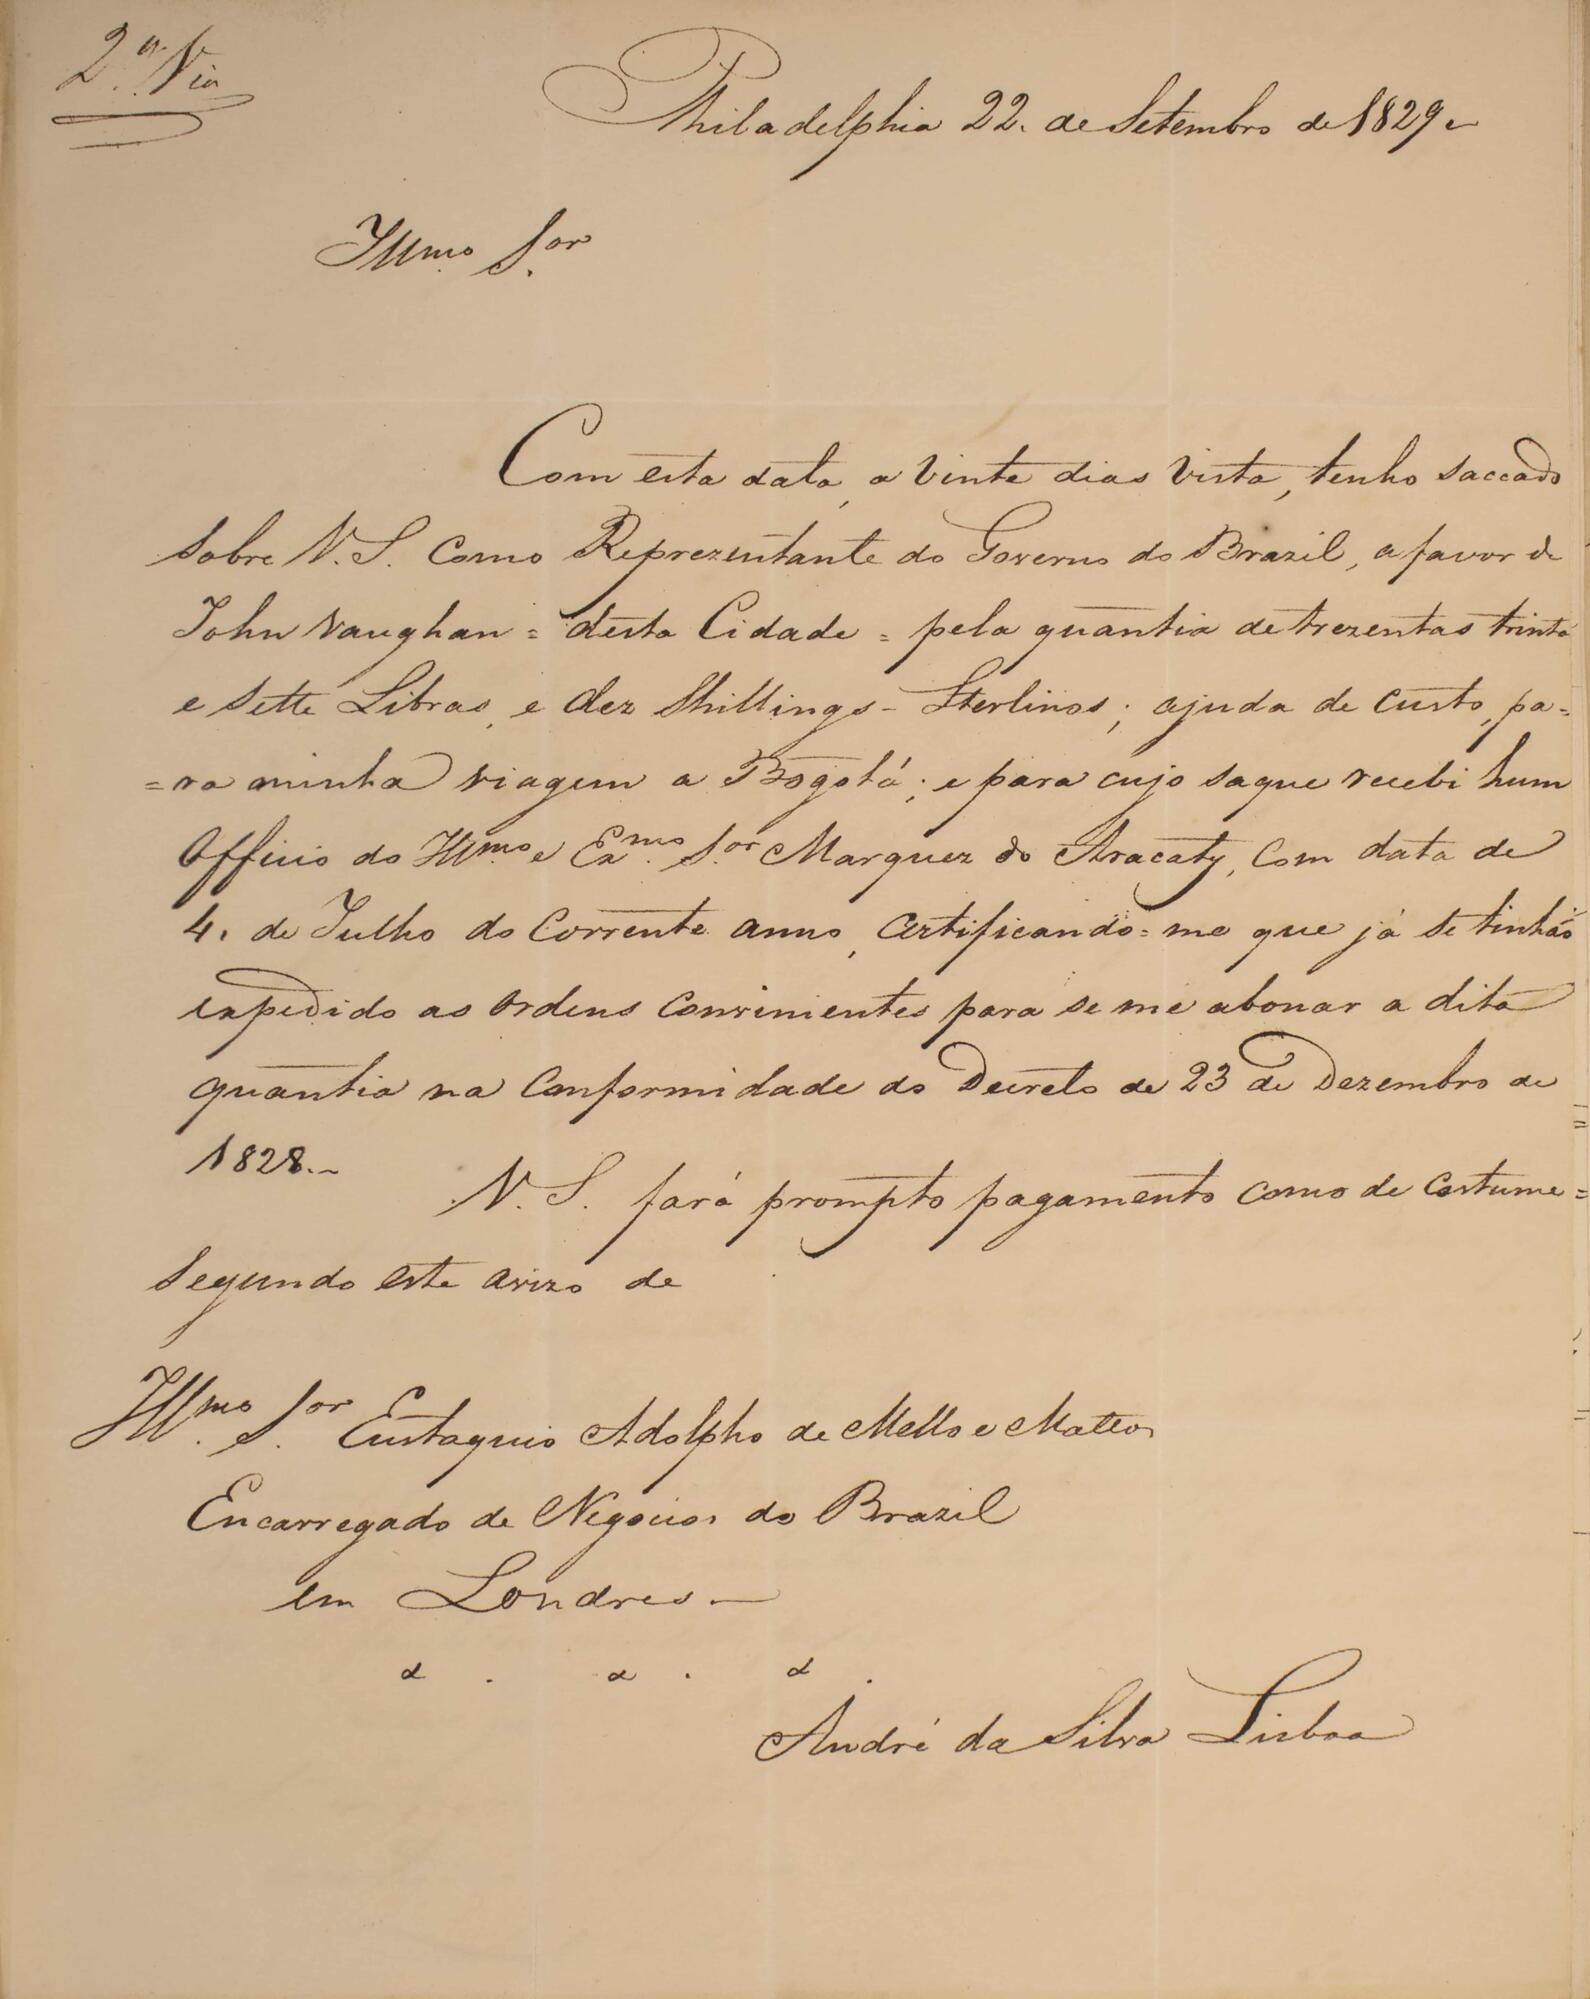 2.ª Via
Philadelphia 22. de Setembro de 1829
Illmo Sor
Com esta data, a vinte dias vista, tenho saccado
sobre V. S. como Reprezentante do Governo do Brazil, a favor de
John Vaughan = desta Cidade = pela quantia de trezentas trinta
e sette Libras, e dez Shillings - Sterlinos; ajuda de custo, pa=
=ra minha viagem a Bogotá; e para cujo saque recebi hum
Officio do Illmo e Exmo Sor Marquez do Aracaty, com data de
4. de Julho do corrente anno, certificando=me que já se tinhão
expedido as ordens convinientes para se me abonar a dita
quantia na conformidade do Decreto de 23 de Dezembro de
1828.-
V. S. fará prompto pagamento como de costume=
segundo este avizo de
Illmo Sor Eustaquio Adolpho de Mello e Mattos
Encarregado de Negocios do Brazil
em Londres -
André da Silva Lisboa